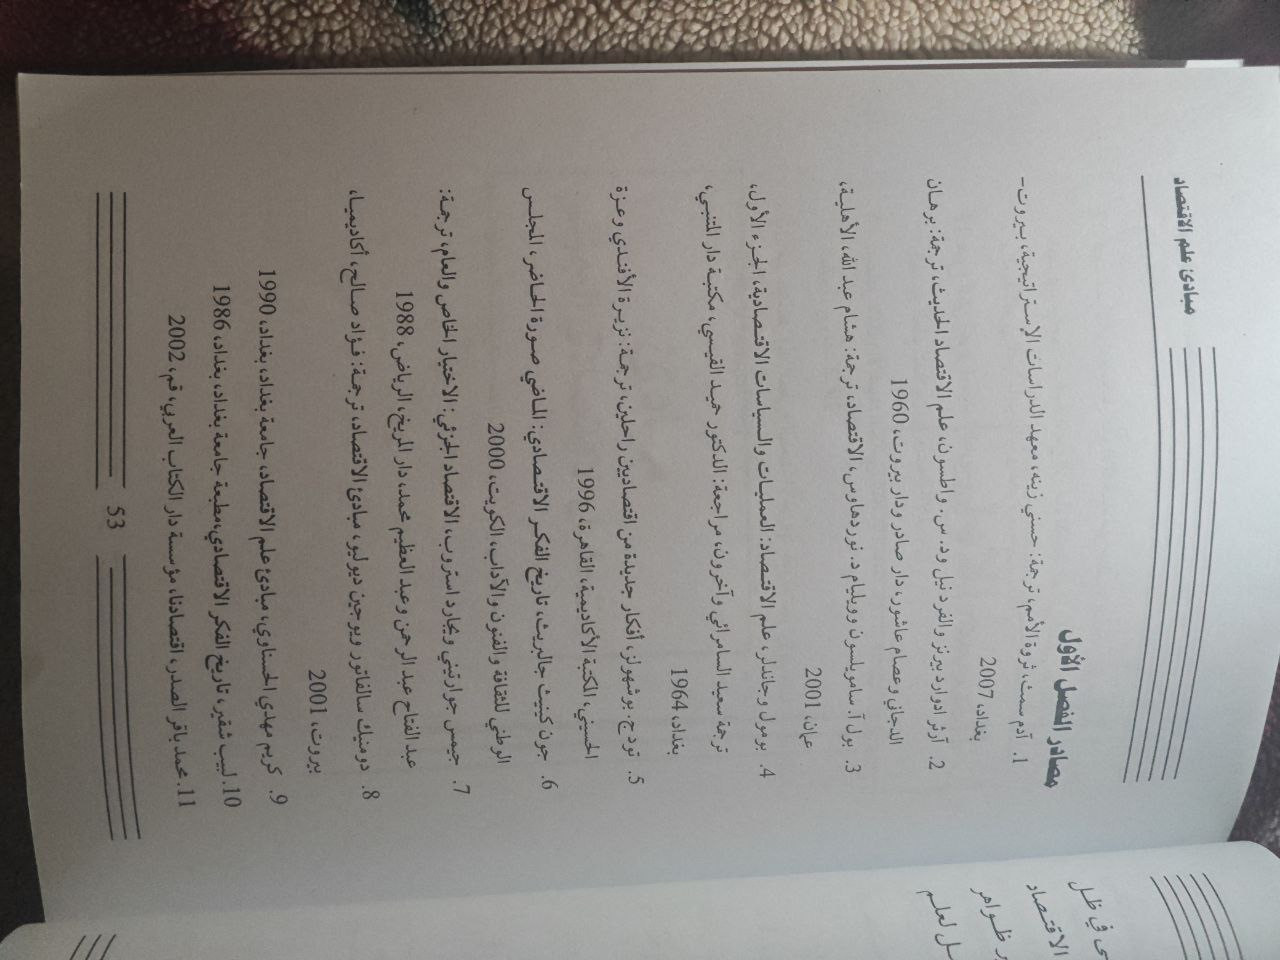 مبادئ علم الاقتصاد
مصادر الفصل الأول
1. آدم سمث، ثروة الأمم، ترجمة: حسني زينه، معهد الدراسات الإستراتيجية، بيروت-
بغداد، 2007
2. آرثر ادوارد بيرنز والفرد نيل ود. س. واطسون، علم الاقتصاد الحديث، ترجمة: برهان
الدجاني وعصام عاشور، دار صادر ودار بيروت، 1960
3. بول آ. سامويلسون وويليام د. نوردهاوس، الاقتصاد، ترجمة: هشام عبد الله، الأهلية،
عمان، 2001
4. بومول وجاندلر، علم الاقتصاد: العمليات والسياسات الاقتصادية، الجزء الأول،
ترجمة سعيد السامرائي وآخرون، مراجعة: الدكتور حميد القيسي، مكتبة دار المتنبي،
بغداد، 1964
5. تود ج. بوشهولز، أفكار جديدة من اقتصاديين راحلين، ترجمة: نزيرة الأفندي وعزة
الحسيني، المكتبة الأكاديمية، القاهرة، 1996
6. جون كينيث جالبريث، تاريخ الفكر الاقتصادي: الماضي صورة الحاضر، المجلس
الوطني للثقافة والفنون والآداب، الكويت، 2000
7. جيمس جوارتيني ويجارد استروب، الاقتصاد الجزئي: الاختيار الخاص والعام، ترجمة:
عبد الفتاح عبد الرحمن وعبد العظيم محمد، دار المريخ، الرياض، 1988
8. دومنيك سالفاتور ويوجين ديوليو، مبادئ الاقتصاد، ترجمة: فؤاد صالح، أكاديميا،
بيروت، 2001
9. كريم مهدي الحسناوي، مبادئ علم الاقتصاد، جامعة بغداد، بغداد، 1990
10. لبيب شقير، تاريخ الفكر الاقتصادي، مطبعة جامعة بغداد، بغداد، 1986
11. محمد باقر الصدر، اقتصادنا، مؤسسة دار الكتاب العربي، قم، 2002
53
في ظل
الاقتصاد
ظواهر
لعلم